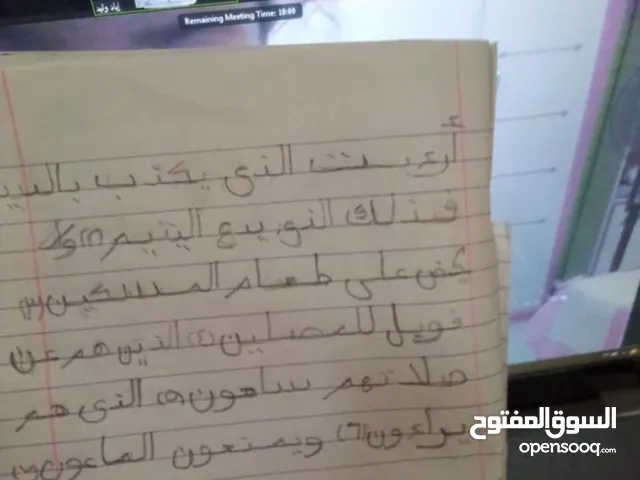 إياد وليد
Remaining Meeting Time: 10:00
أرءيت الذي يكذب
فذلك الذي يدع اليتيم (٢) ولا
يحض على طعام المسكين (٣)
فويل للمصلين (٤) الذين هم عن
صلاتهم ساهون (٥) الذي هم
يراءون (٦) ويمنعون الماعون (٧)
السوق المفتوح
opensooq.com